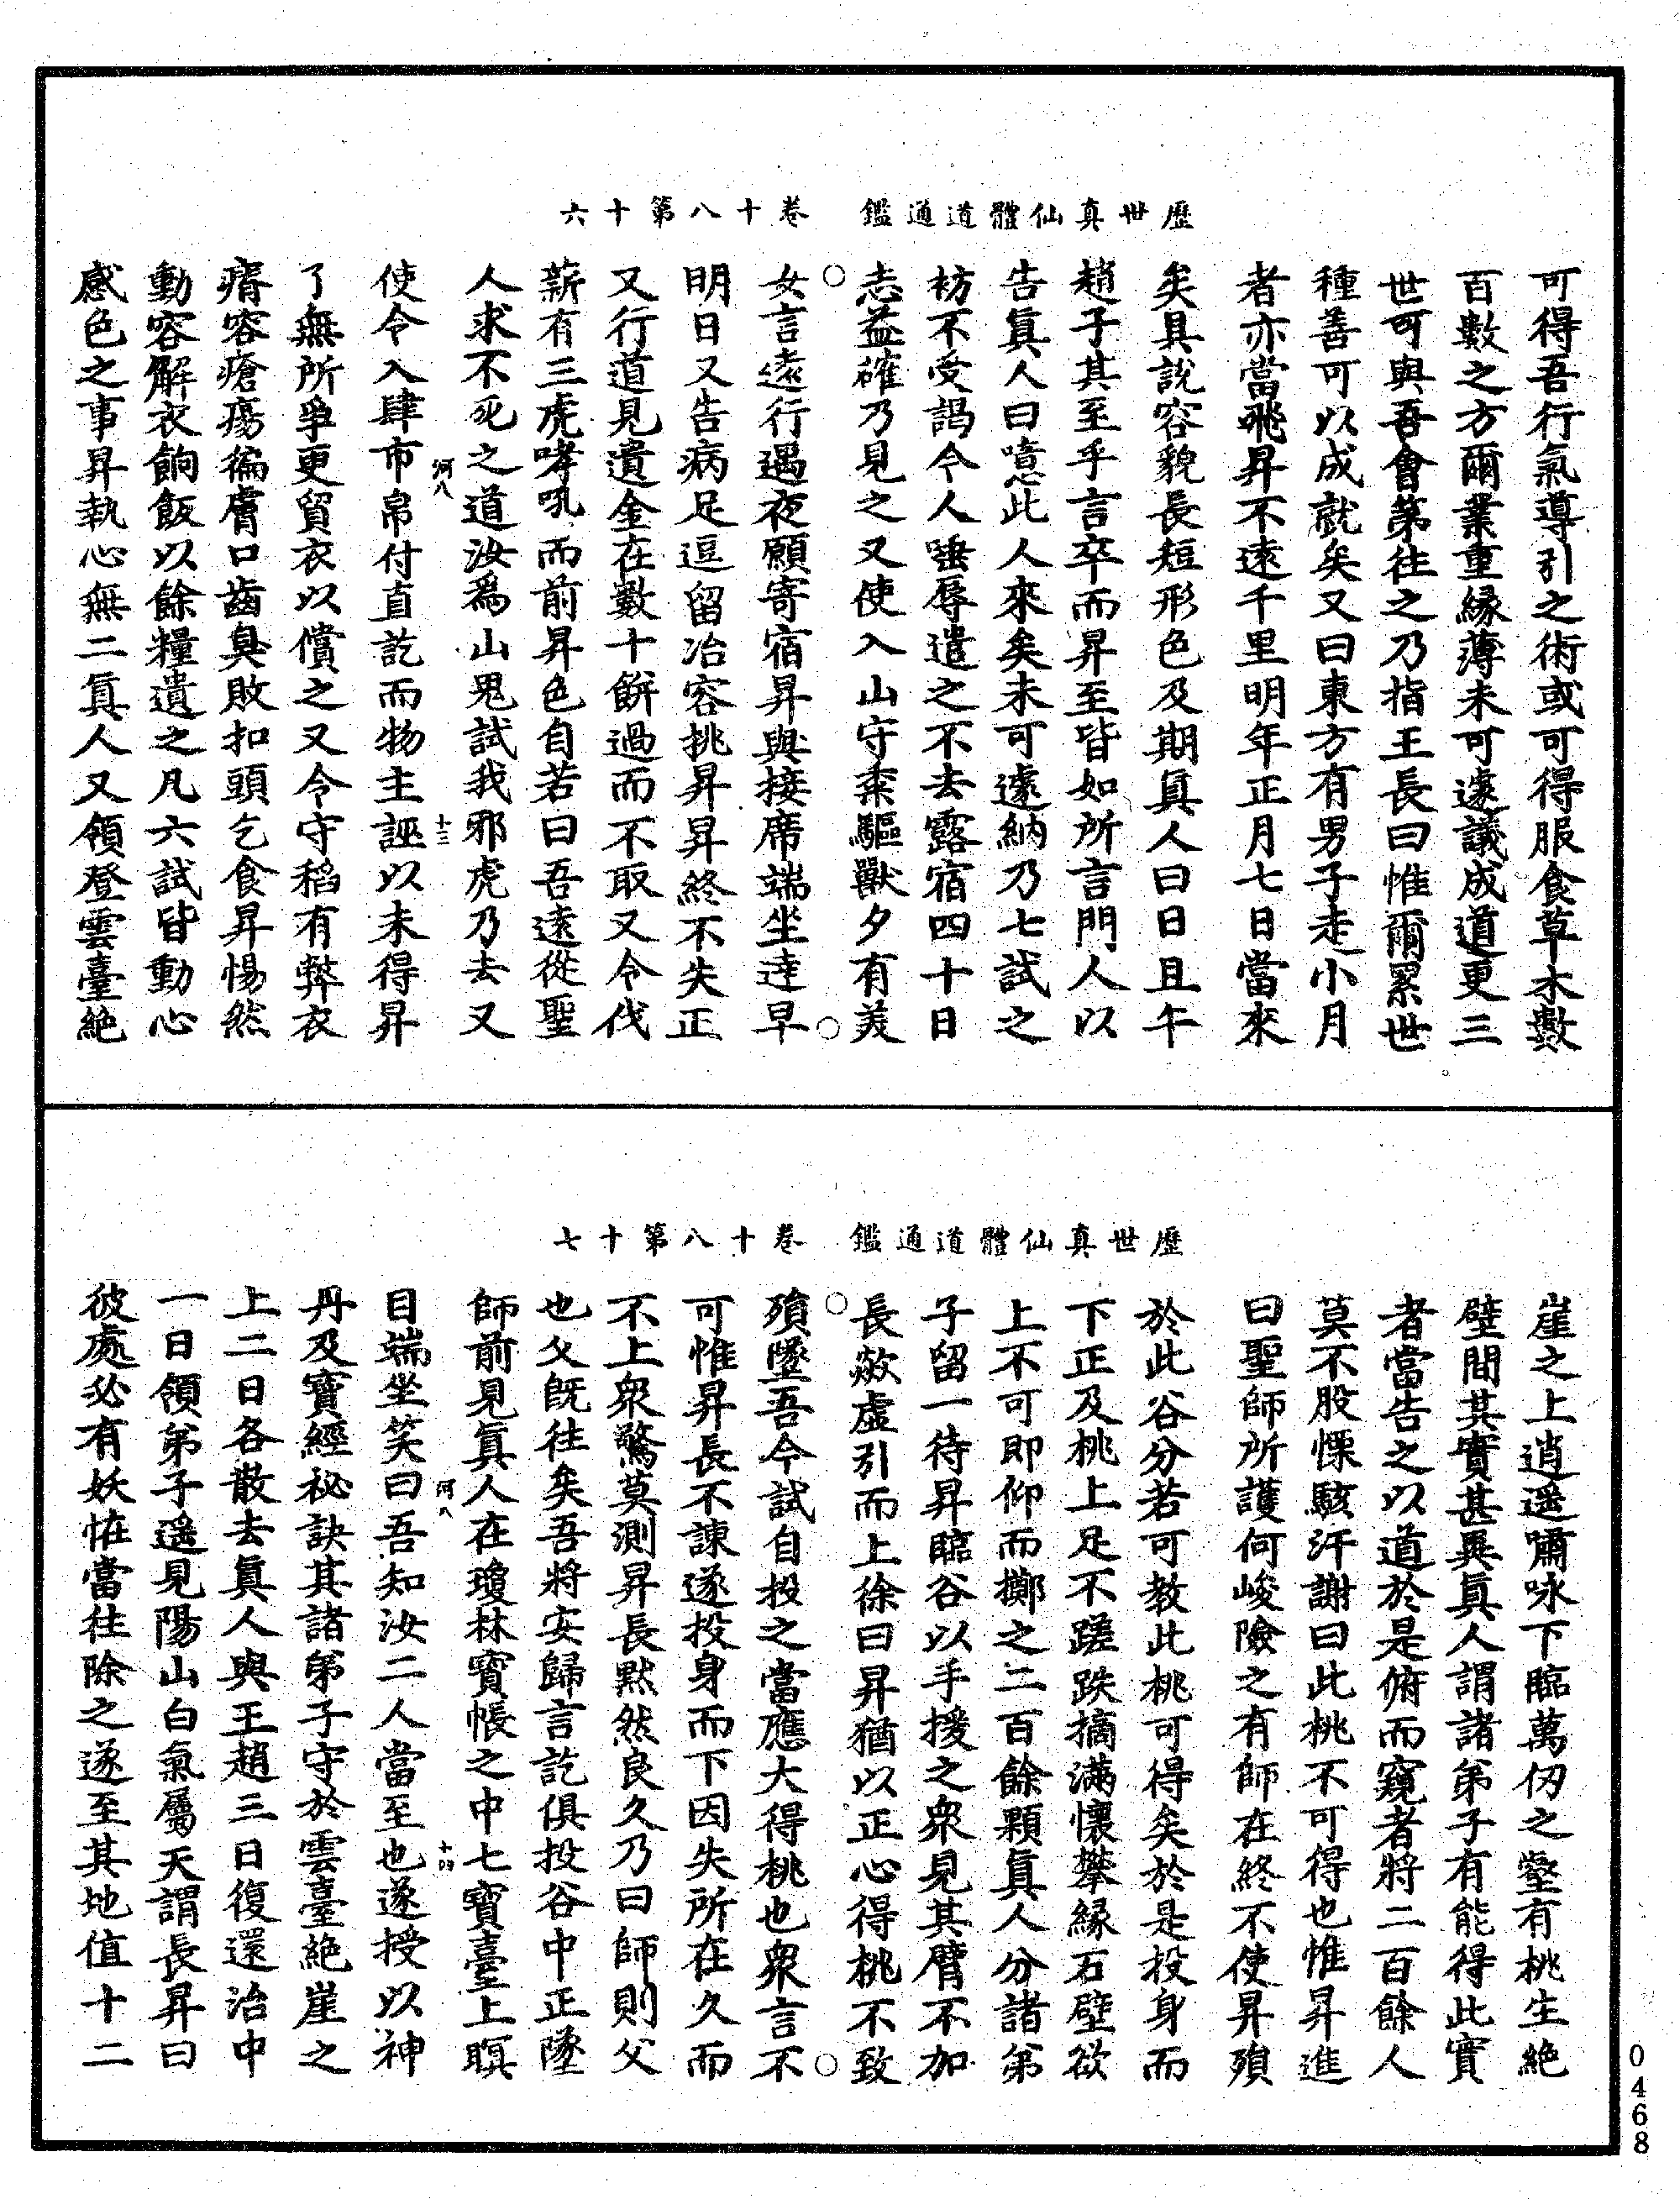 歷世真仙體道通鑑　卷十八第十六
可得吾行氣導引之術或可得服食草木數
百數之方爾業重緣薄未可遽議成道更三
世可與吾會第往之乃指王長曰惟爾累世
種善可以成就矣又曰東方有男子走小月
者亦當飛昇不遠千里明年正月七日當來
矣具說容貌長短形色及期真人曰日且午
趙子其至乎言卒而昇至皆如所言門人以
告真人曰噫此人來矣未可遽納乃七試之
初不受謁令人唾辱遣之不去露宿四十日
志益確乃見之又使入山守黍驅獸夕有美
女言遠行遇夜願寄宿昇與接席端坐達早
明日又告病足逗留冶容挑昇昇終不失正
又行道見遺金在數十餅過而不取又令伐
薪有三虎哮吼而前昇色自若曰吾遠從聖
人求不死之道汝為山鬼試我邪虎乃去又
河八　十三
使令入肆市帛付直訖而物主誣以未得昇
了無所爭更貿衣以償之又令守稻有弊衣
瘠容瘡瘍徧膚口齒臭敗扣頭乞食昇惕然
動容解衣餉飯以餘糧遺之凡六試皆動心
感色之事昇執心無二真人又領登雲臺絕
歷世真仙體道通鑑　卷十八第十七
崖之上逍遥嘯咏下臨萬仞之壑有桃生絕
壁間其實甚異真人謂諸弟子有能得此實
者當告之以道於是俯而窺者將二百餘人
莫不股慄駭汗謝曰此桃不可得也惟昇進
曰聖師所護何峻險之有師在終不使昇殞
於此谷分若可教此桃可得矣於是投身而
下正及桃上足不蹉跌摘滿懷攀緣石壁欲
上不可即仰而擲之二百餘顆真人分諸弟
子留一待昇臨谷以手援之衆見其臂不加
長歘虛引而上徐曰昇猶以正心得桃不致
殞墜吾今試自投之當應大得桃也衆言不
可惟昇長不諫遂投身而下因失所在久而
不上衆驚莫測昇長默然良久乃曰師則父
也父既往矣吾將安歸言訖俱投谷中正墜
師前見真人在瓊林寶帳之中七寶臺上瞑
河八　十四
目端坐笑曰吾知汝二人當至也遂授以神
丹及寶經祕訣其諸弟子守於雲臺絕崖之
上二日各散去真人與王趙三日復還治中
一日領弟子遥見陽山白氣屬天謂長昇曰
彼處必有妖怪當往除之遂至其地值十二
0468